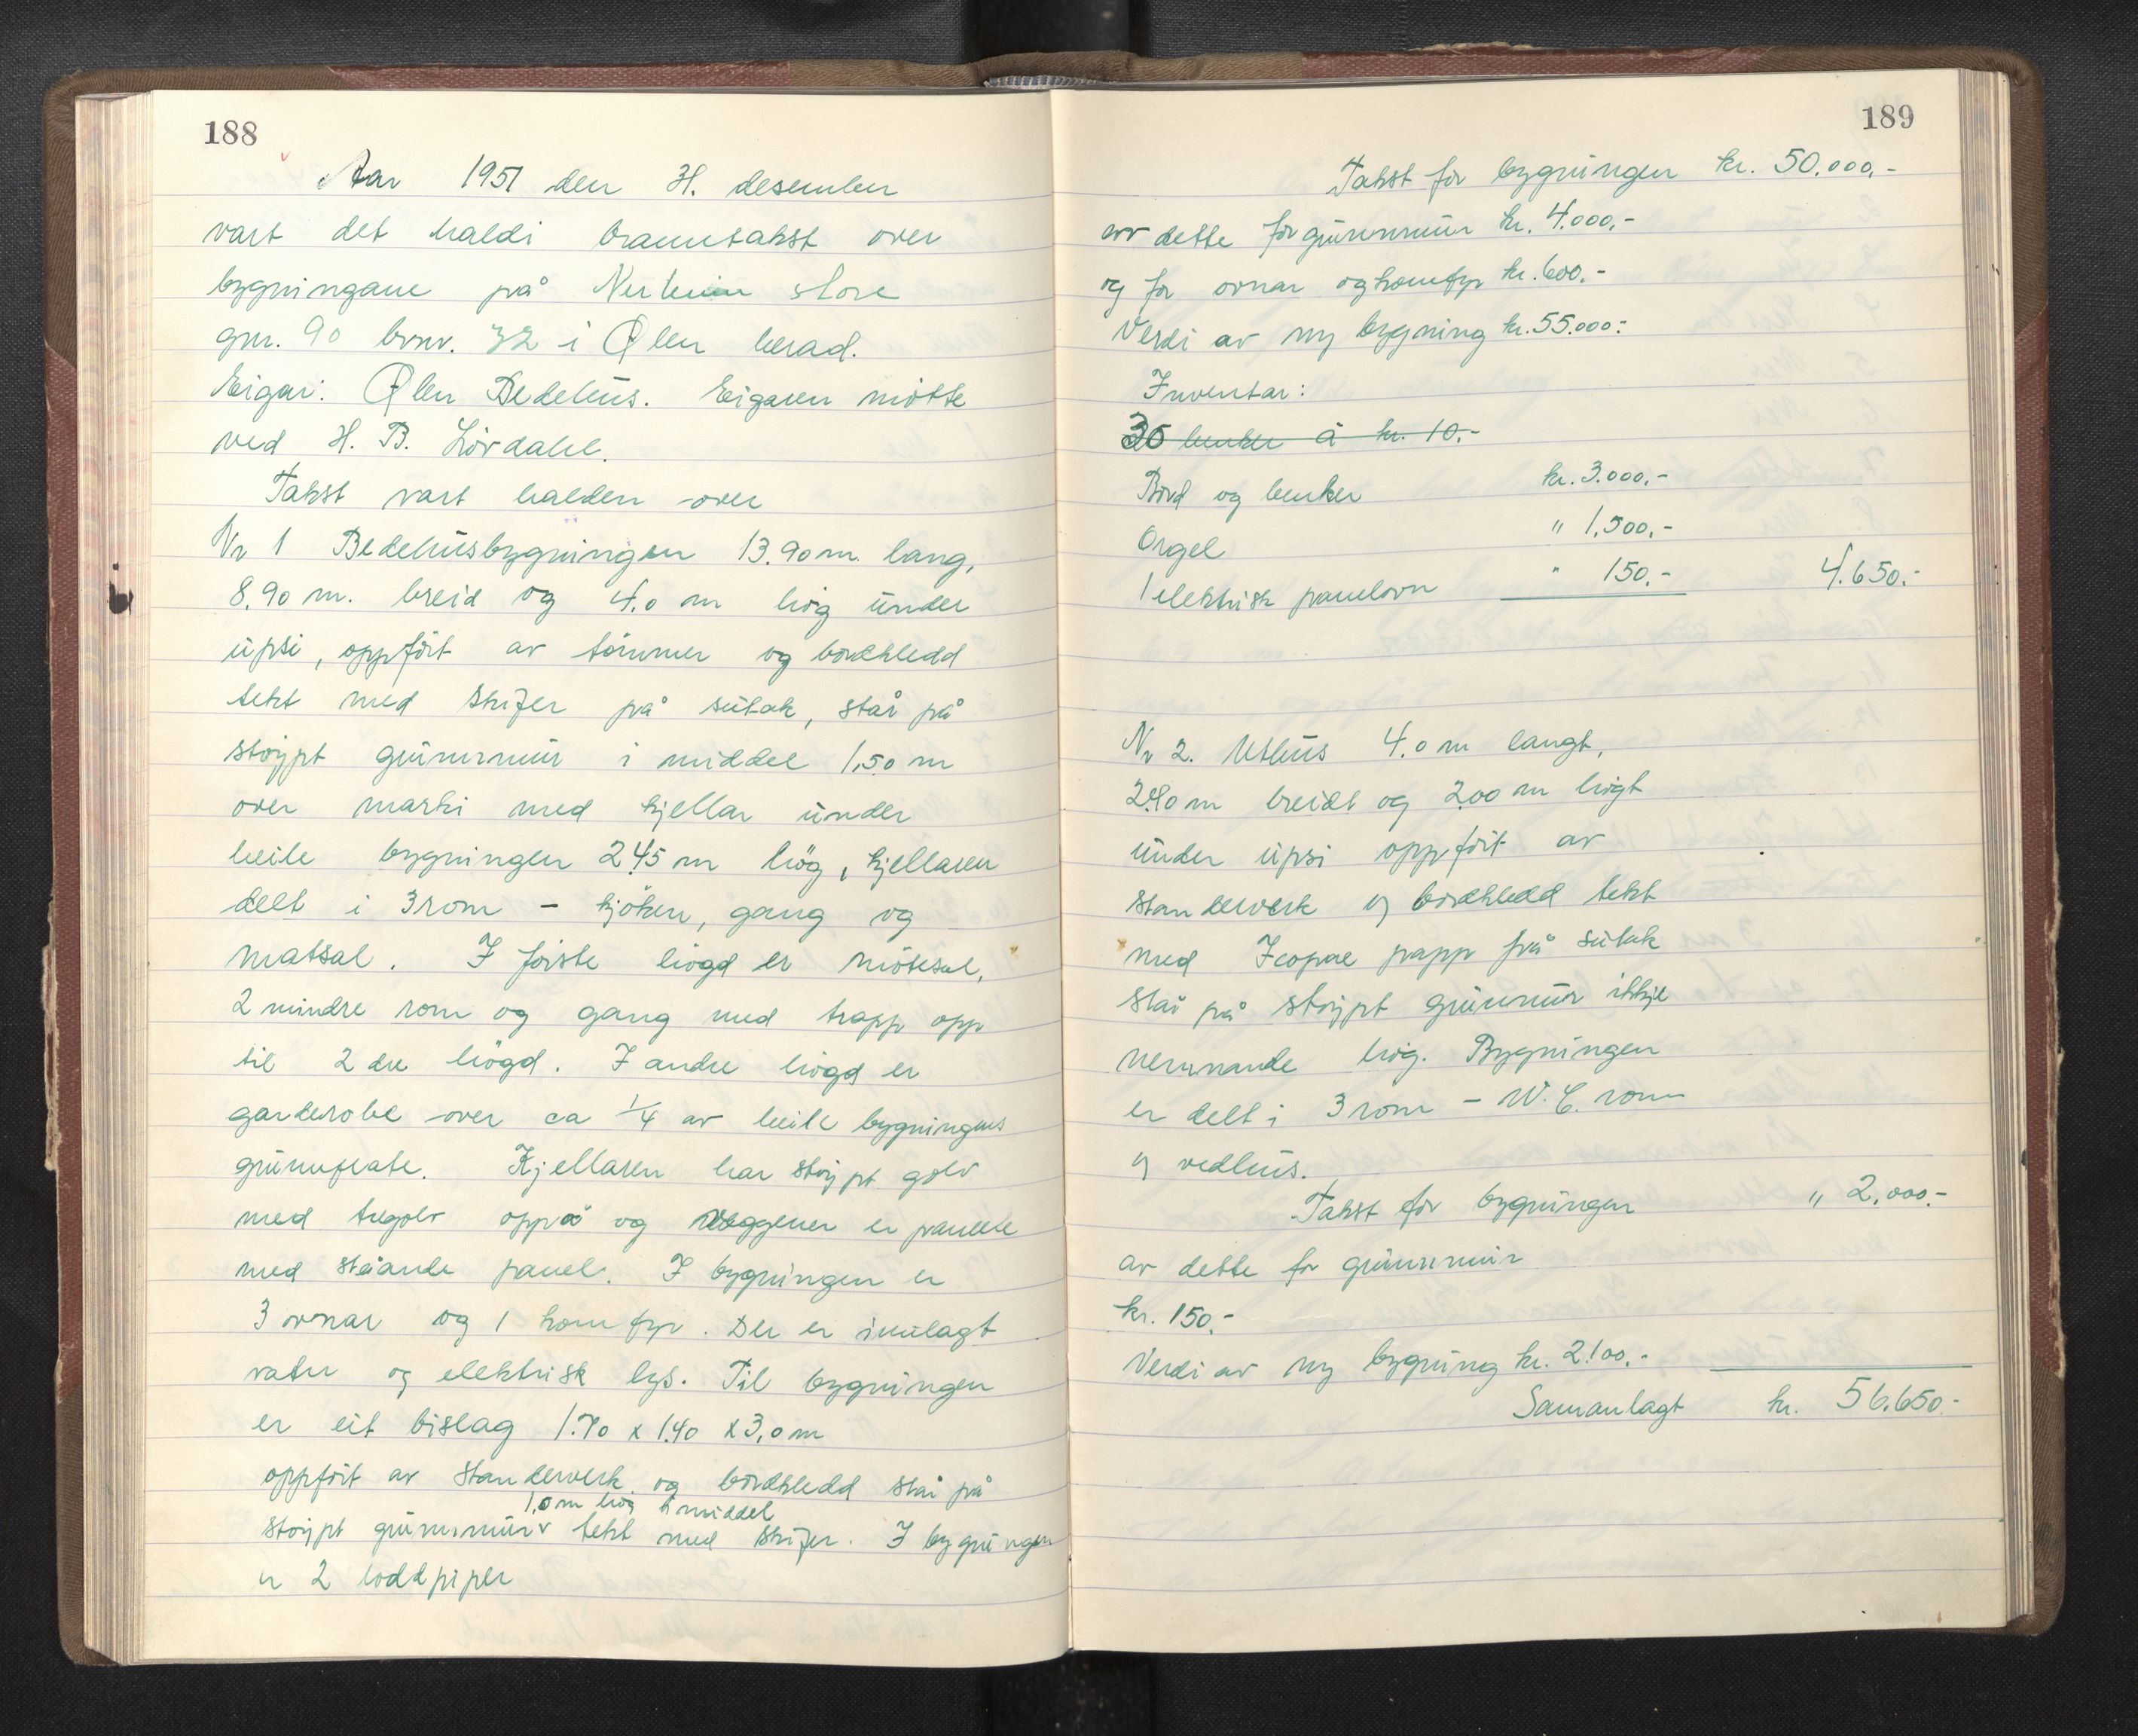 188
Aar 1951 den 4. desember
vart det haldi branntakst over
bygningane på Nerheim store
gnr. 90 brnr. 32 i Ølen herad.
Eigar: Ølen Bedehus. Eigaren møtte
ved H. B. Lørdahl.
Takst vart halden over
Nr 1 Bedehusbygningen 13.90 m. lang,
8.90 m. breid og 4.0 m høg under
upsi, oppført av tømmer og bordkledd
tekt med skifer på sutak, står på
støypt grunnmur i middel 1,50 m
over marki med kjellar under
heile bygningen 2,45 m høg, kjellaren
delt i 3 rom - kjøken, gang og
matsal. I første høgd er møtesal,
2 mindre rom og gang med trapp opp
til 2 dre høgd. I andre høgd er
garderobe over ca 1/4 av heile bygningens
grunnflate. Kjellaren har støypt golv
med tregolv oppå og veggener er panelte
med ståande panel. I bygningen er
3 ovnar og 1 komfyr. Der er innlagt
vatn og elektrisk lys. Til bygningen
er eit bislag 1.70 x 1.40 x 3,0 m
oppført av standerverk og bordkledd står på
1,0 m høg i middel
støypt grunnmur v tekt med skifer. I bygningen
er 2 loddpiper
189
Takst for bygningen kr. 50.000,-
av dette for grunnmur kr. 4.000,-
og for ovnar og komfyr kr. 600.-
Verdi av ny bygning kr. 55.000.-
Inventar:
30 benker à kr. 10.-
Bord og benker kr. 3.000,-
Orgel " 1,500,-
1 elektrisk panelovn " 150.- 4.650.-
Nr 2. Uthus 4.0 m langt,
2.40 m breidt og 2.00 m høgt
under upsi oppført av
standerverk og bordkledd tekt
med Icopal papp på sutak
står på støypt grunnmur ikkje
nemnande høg. Bygningen
er delt i 3 rom - W.C. rom
og vedhus.
Takst for bygningen " 2.000.-
av dette for grunnmur
kr. 150.-
Verdi av ny bygning kr. 2.100.-
Samanlagt kr. 56.650.-